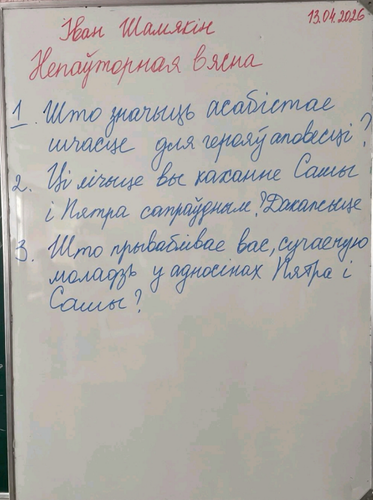 13.04.2026
Іван Шамякін
Непаўторная вясна
1. Што значыць асабістае
шчасце для герояў аповесці?
2. Ці лічыце вы каханне Сашы
і Пятра сапраўдным? Дакажыце
3. Што прываблівае вас, сучасную
моладзь у адносінах Пятра і
Сашы?